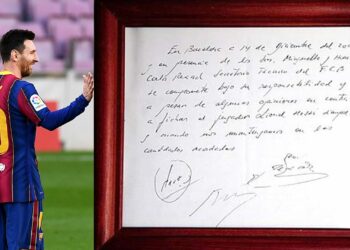 En Barcelona a 14 de diciembre del 20
en presencia de los Srs. Minguella y Hora
Carles Rexach Secretario Técnico del F.C.B
se compromete bajo su responsabilidad y
a pesar de algunas opiniones en contra
a fichar al jugador Lionel Messi siempre
y cuando nos mantengamos en las
cantidades acordadas